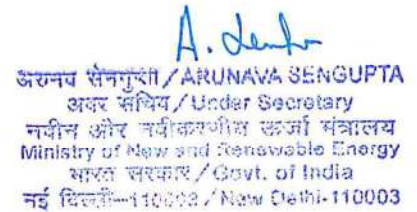 A. Sen
अरुनव सेनगुप्ता / ARUNAVA SENGUPTA
अवर सचिव / Under Secretary
नवीन और नवीकरणीय ऊर्जा मंत्रालय
Ministry of New and Renewable Energy
भारत सरकार / Govt. of India
नई दिल्ली-110003 / New Delhi-110003